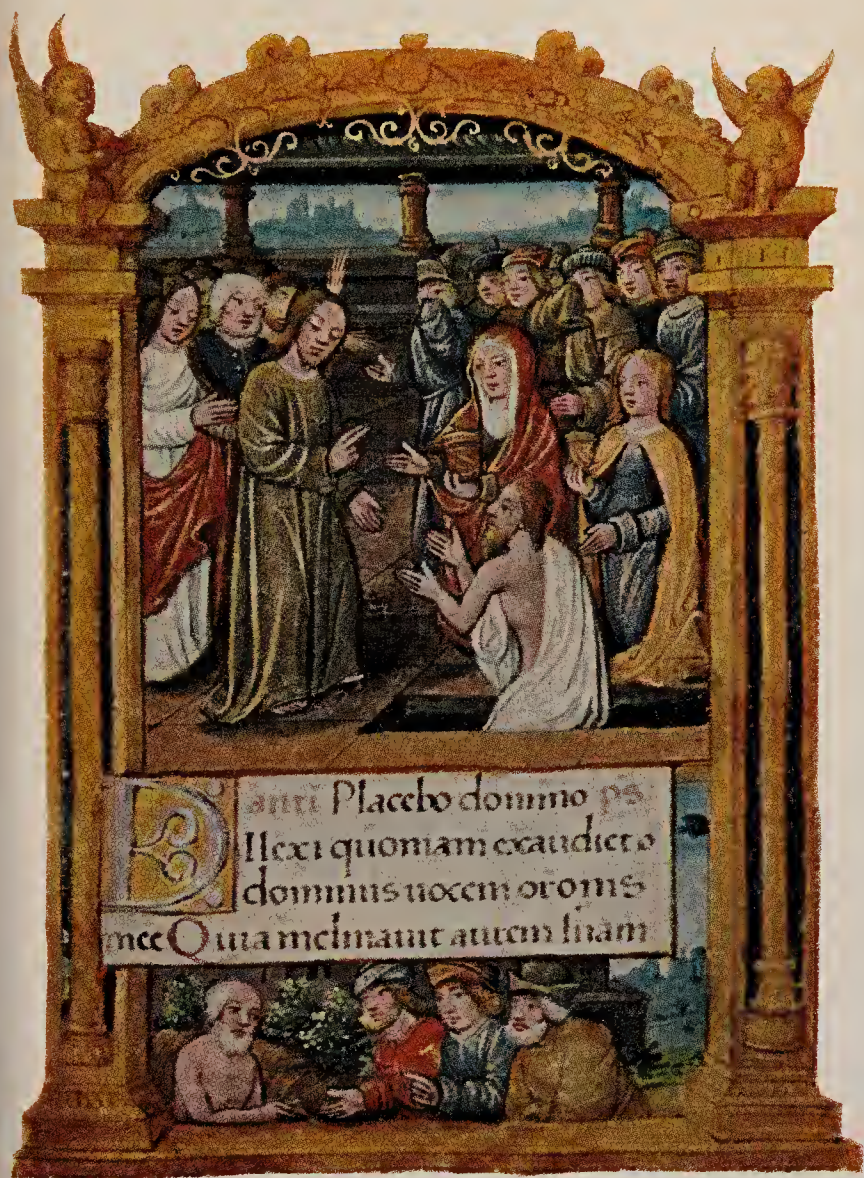 anti Placebo domino ps
DIlexi quoniam exaudiet
dominus uocem oronis
mee Quia inclinauit aurem suam